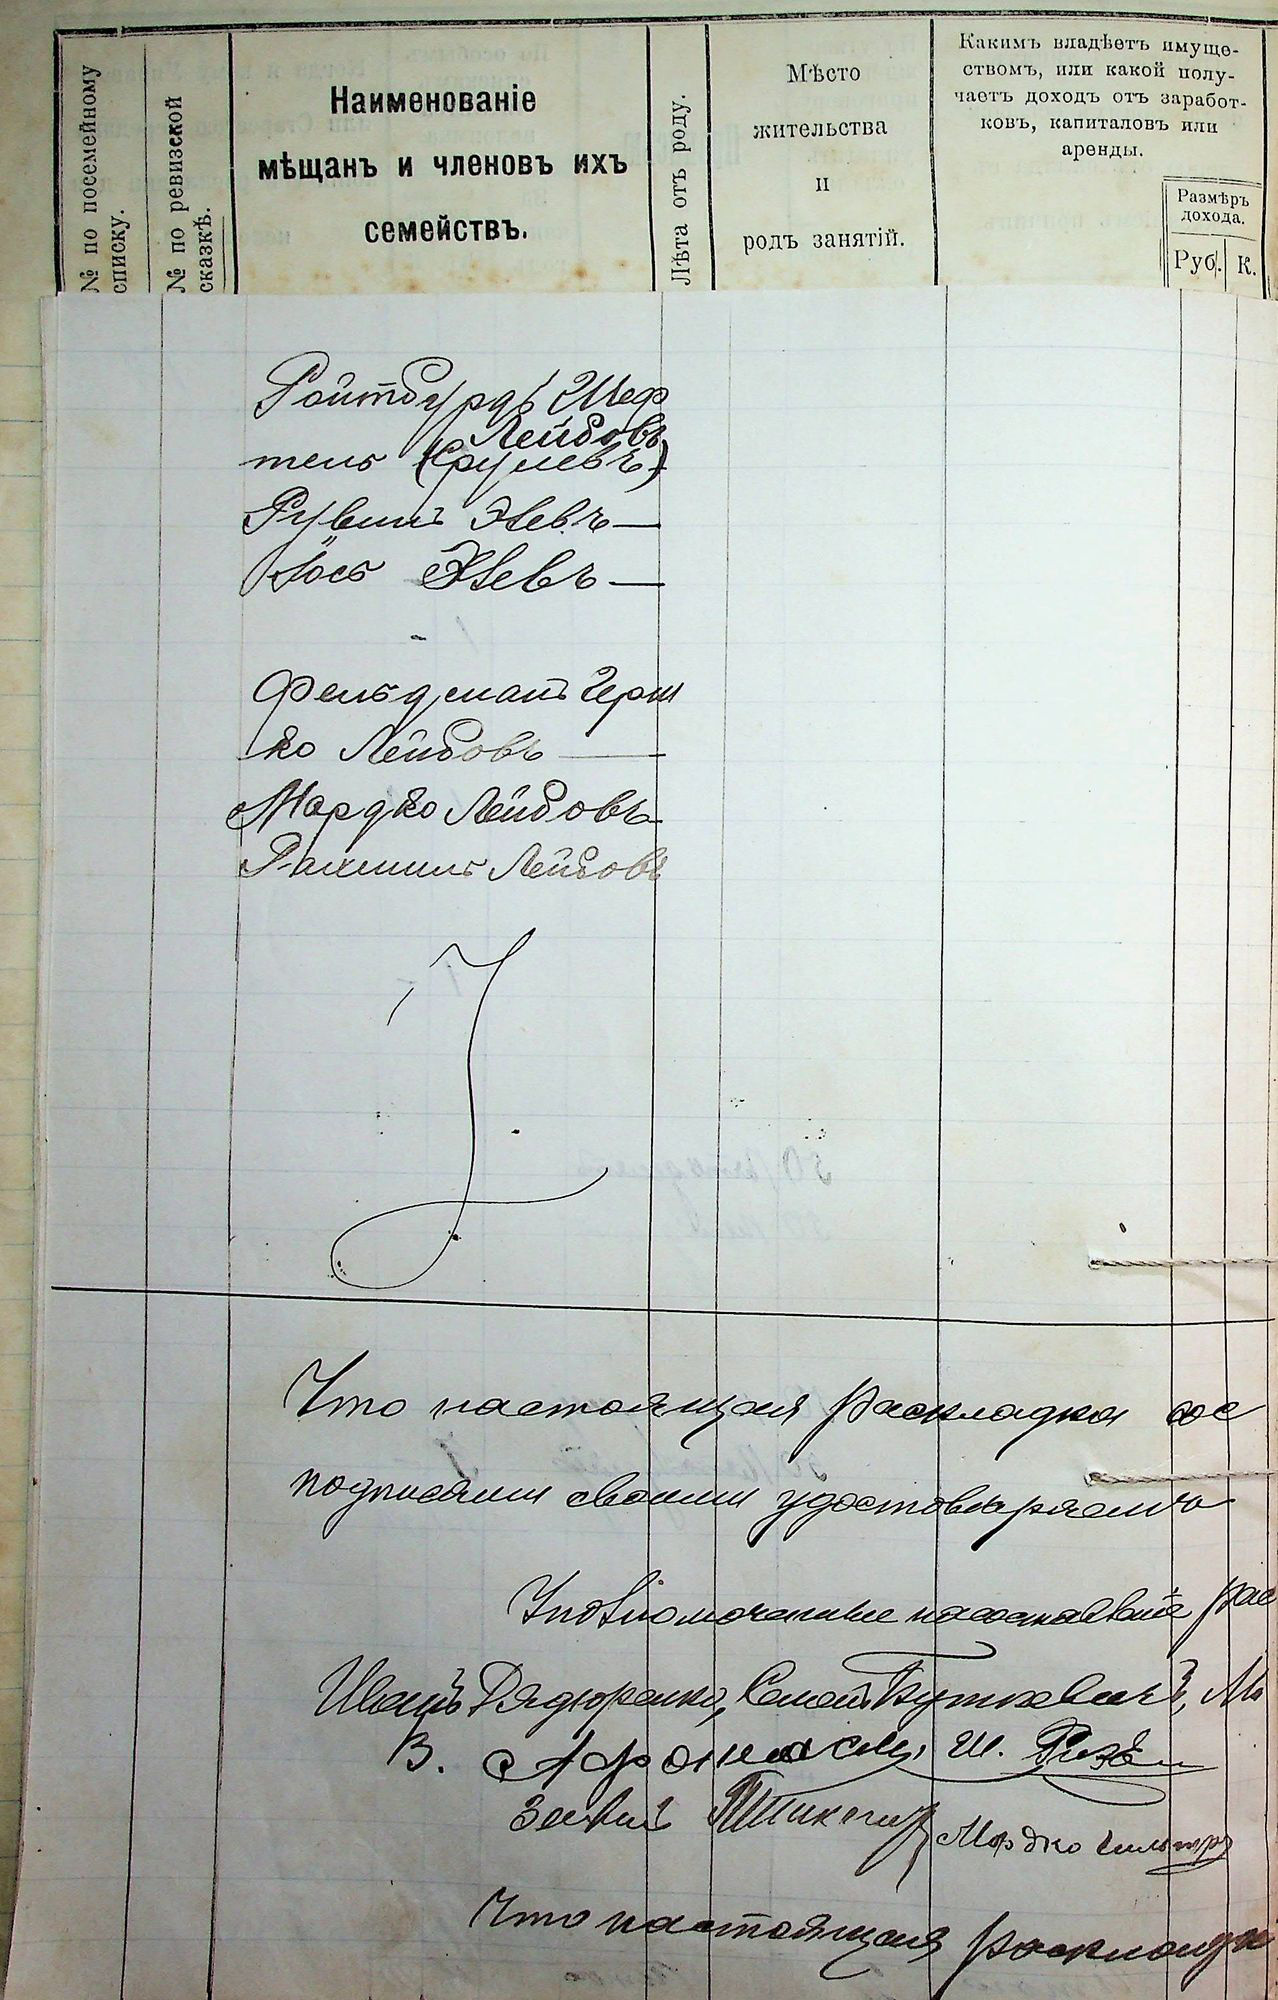 № по посемейному
списку.
№ по ревизской
сказкѣ.
Наименованіе
мѣщанъ и членовъ ихъ
семействъ.
Лѣта отъ роду.
Мѣсто
жительства
и
родъ занятій.
Какимъ владѣетъ имуще-
ствомъ, или какой полу-
чаетъ доходъ отъ заработ-
ковъ, капиталовъ или
аренды.
Размѣръ
дохода.
Руб. К.
Ройтбурдъ Шеф
Лейбовъ
тель (Срулевъ)
Рувинъ Эевъ
Іось Эевъ
Фельдманъ Герш
ко Лейбовъ
Мордко Лейбовъ
Рахмиль Лейбовъ
Что настоящая раскладка
подписями своими удостовѣряемъ
Уполномоченные рас
Иванъ Дядюренко, Семенъ Буткевичъ, М
В. Ш.
Мордко
Что настоящая раскладка